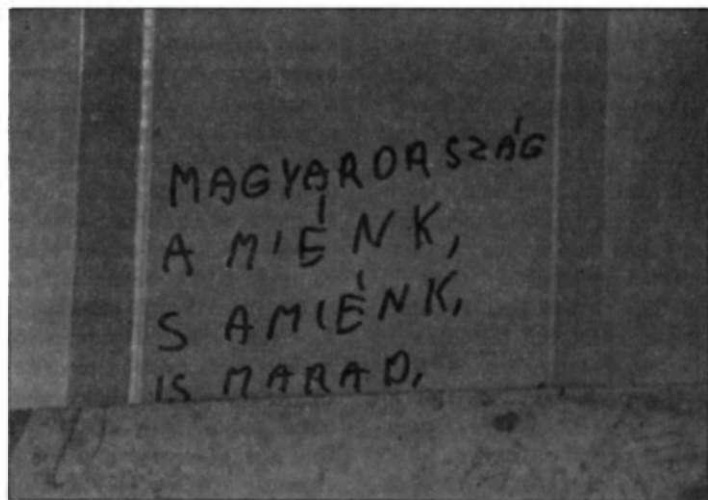 MAGYARORSZÁG
A MIÉNK,
S AMIÉNK,
IS MARAD,